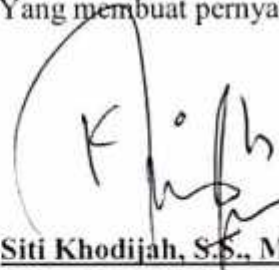 Yang membuat pernya
Siti Khodijah, S.S., M